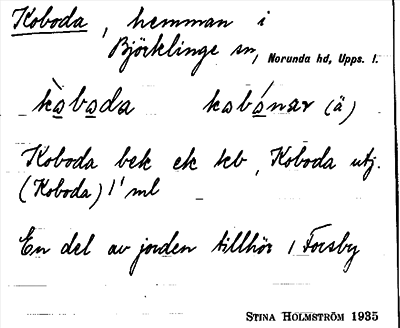 Koboda, hemman i
Björklinge sn, Norunda hd, Upps. l.
kò̱ba̱da kabó̱nar (ä)
Koboda bek ek kb, Koboda utj.
(Koboda) 1' ml
En del av jorden tillhör 1 Forsby
STINA HOLMSTRÖM 1935